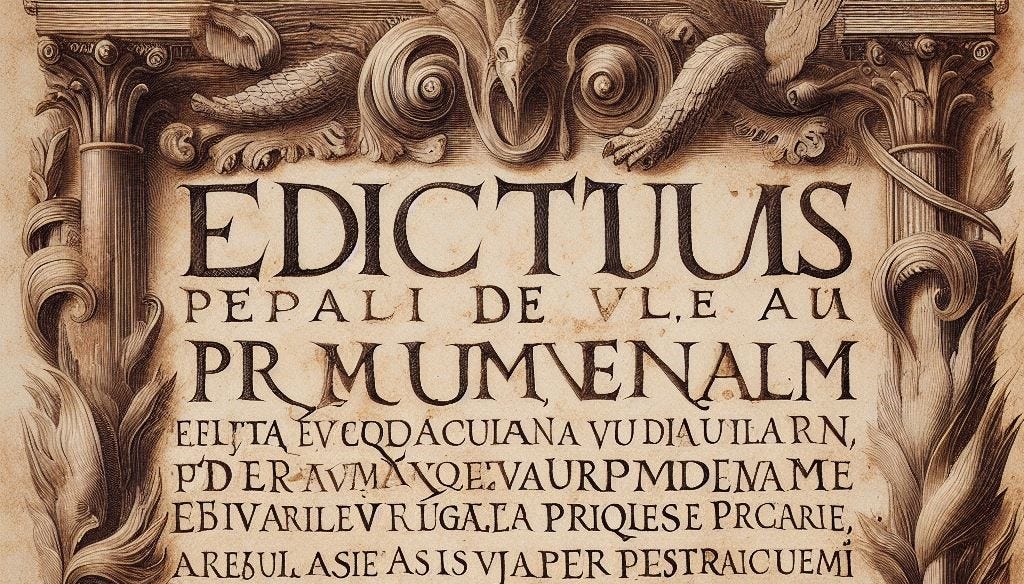 EDICTUUS
PEPALI DE VL.E AU
PR MUMVENALM
EFLJTA EVCQDACULANA VUDIAUILARN,
PDER AVMAXQE:VAURPMDENAME
EBIVARILEVRUGA.EA PRIQLESE PRCARIE,
AREBUL ASIE ASIS VJAPER PESTRAICUEMI